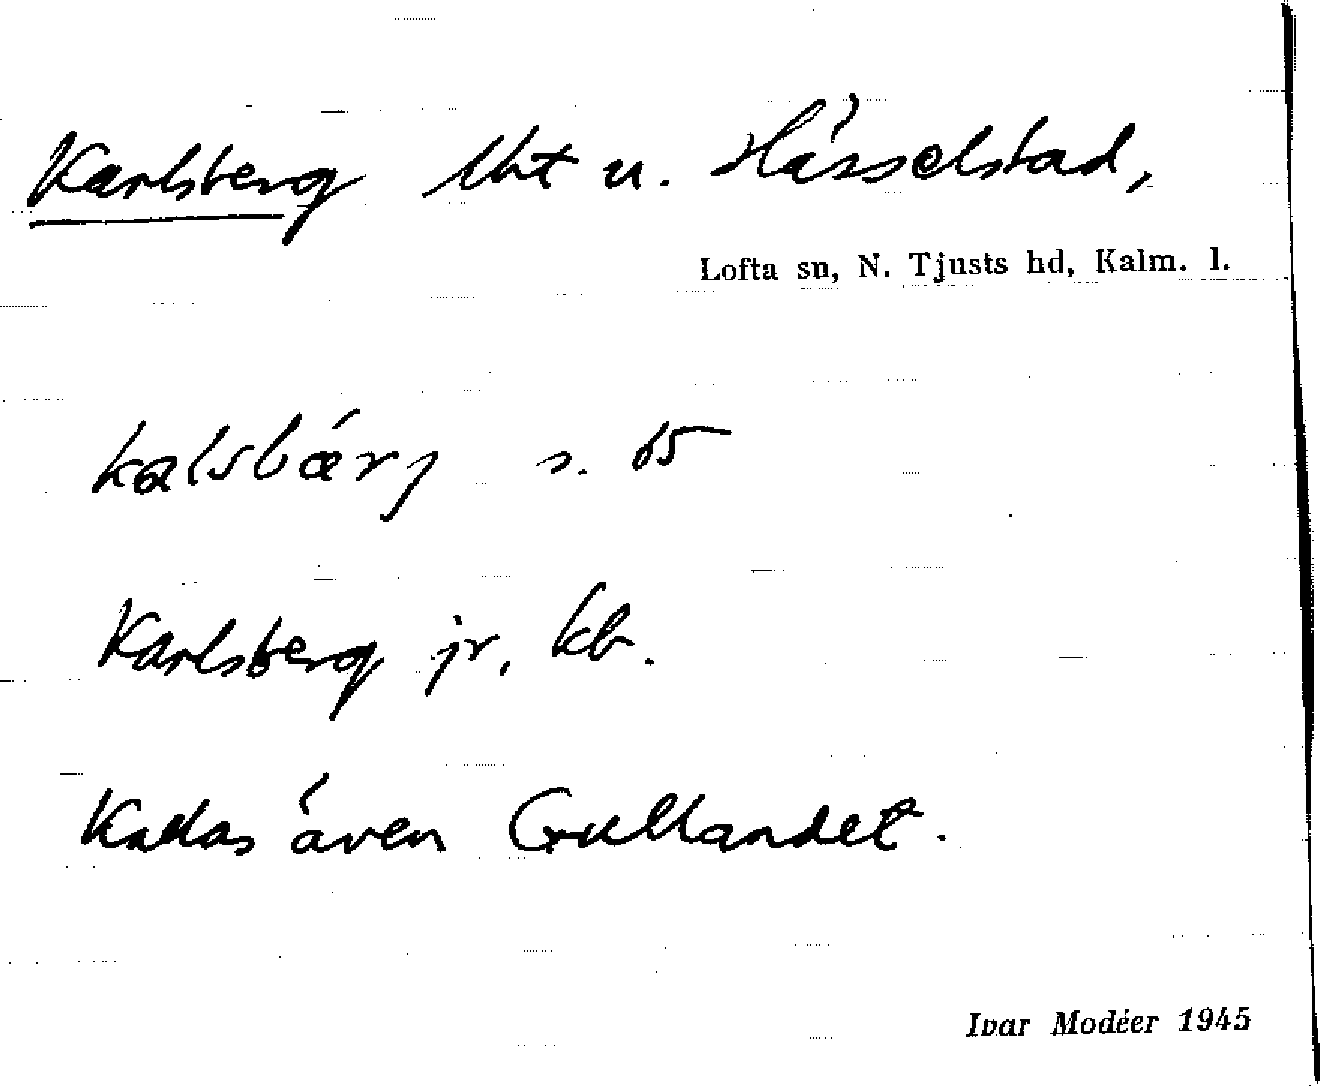 Karlsberg lht u. Hässelstad,
Lofta sn, N. Tjusts hd, Kalm. l.
kalsbärj s. 65
Karlsberg jr, kb.
Kallas även Gullandet.
Ivar Modéer 1945